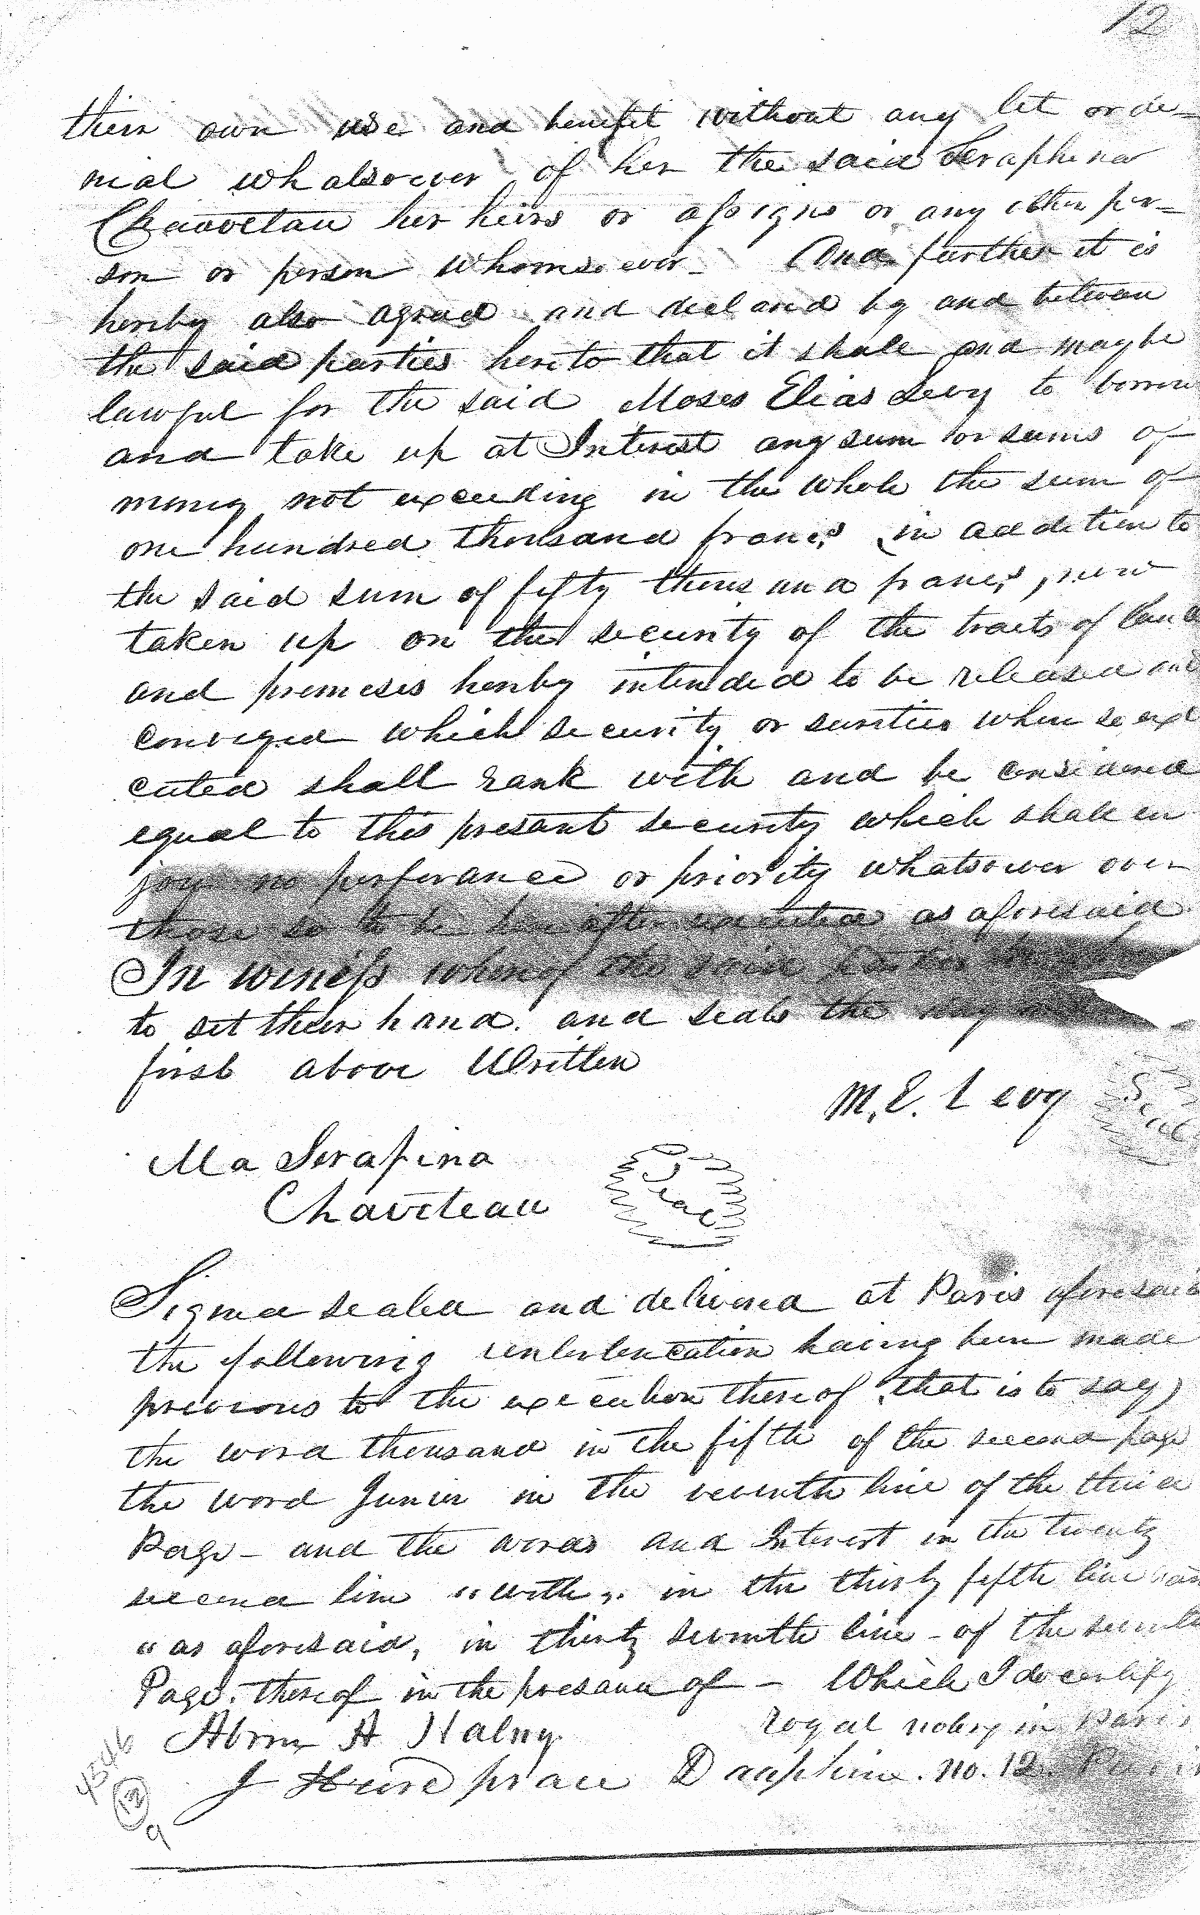 12
their own use and benefit without any let or de-
nial whatsoever of her the said Seraphina
Chauvetau her heirs or assigns or any other per-
son or person whomsoever. And further it is
hereby also agreed and declared by and between
the said parties hereto that it shall and maybe
lawful for the said Moses Elias Levy to borrow
and take up at Interest any sum or sums of
money not exceeding in the whole the sum of
one hundred thousand francs, in addition to
the said sum of fifty thousand francs, now
taken up on the security of the tracts of land
and premises hereby intended to be released and
conveyed which security or surities when so exe
cuted shall rank with and be considered
equal to this presant security which shall en
joy no perferance or priority whatsoever over
those so to be hereafter executed as aforesaid
In winess whereof the said parties
to set their hand. and seals the day
first above Written
M. E. Levy Seal
Ma Serafina
Chaviteau Seal
Signed sealed and delivered at Paris aforesaid
the following having been made
previous to the execution thereof (that is to say)
the word thousand in the fifth of the second page
the word Junior in the seventh line of the third
Page - and the words and Interest in the twenty
second line "with," in the thirty fifth line
"as aforesaid, in thirty seventh line - of the
Page. thereof in the presance of - Which I do certify
Abrm A royal notary in Paris
J Dauphine. no. 12. Paris
4546
12
9